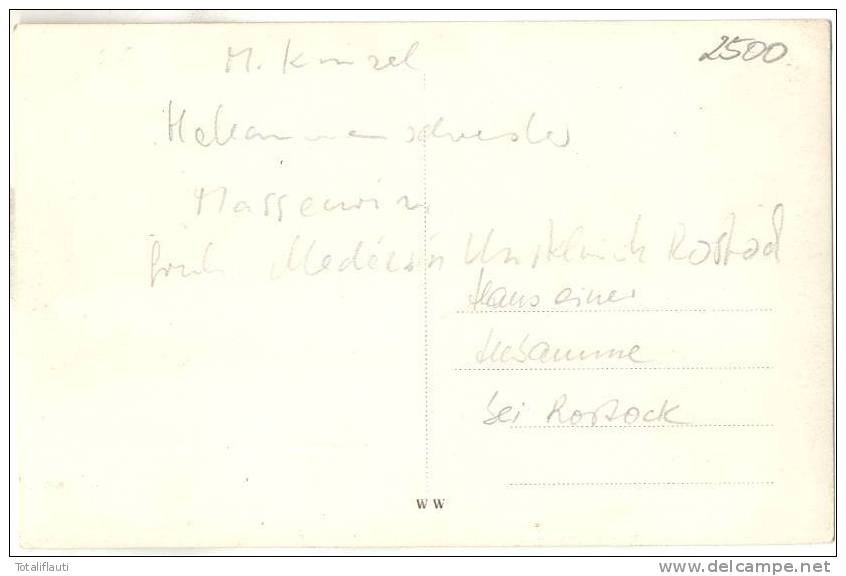 2500
M. Künzel
Hebammenschwester
früh. Medizin Uniklinik Rostock
Haus einer
Hebamme
bei Rostock
W W
Totaliflauti
www.delcampe.net